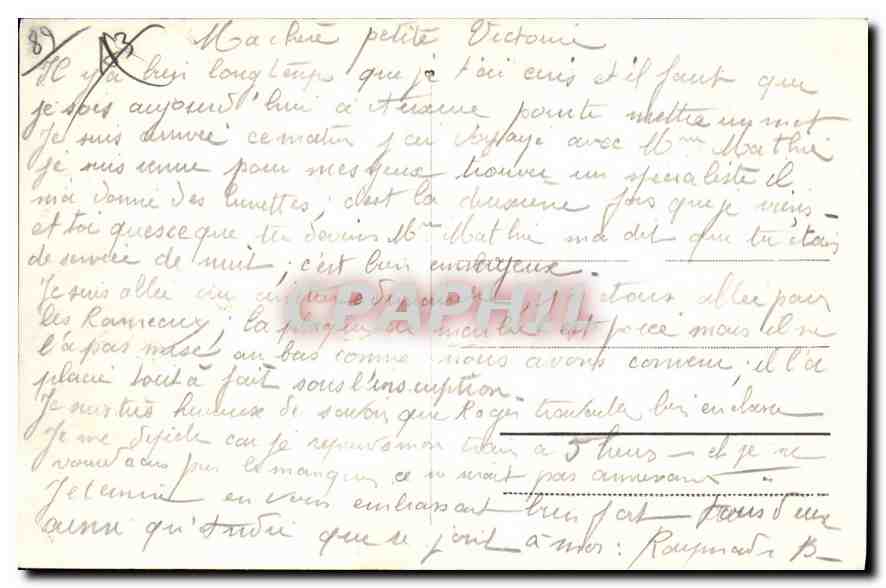 89 13
Ma chère petite Victorine
Il y a bien longtemps que je t'ai ecris et il faut que
je sois aujourd'hui à pour te mettre un mot
Je suis arrivée ce matin j'ai voyagé avec Mme Mathie
je suis venue pour mes yeux trouver un specialiste il
m'a donné des lunettes, c'est la deuxieme fois que je viens
et toi quesceque tu deviens Mme Mathie ma dit que tu étais
de service de nuit, c'est bien ennuyeux.
Je suis allée au allée pour
les Rameaux, la plaque de marbre est posée mais il ne
l'a pas mise au bas comme nous avons convenu, il l'a
placée tout à fait sous l'inscription.
Je suis très heureuse de savoir que Roger travaille bien en classe
Je me dépêche car je reprends mon train à 5 heures et je ne
voudrais pas le manquer ce ne serait pas amusant
Je termine en vous embrassant bien fort tous deux
ainsi qu'André que se joint à moi : Raymonde B
CPAPHIL